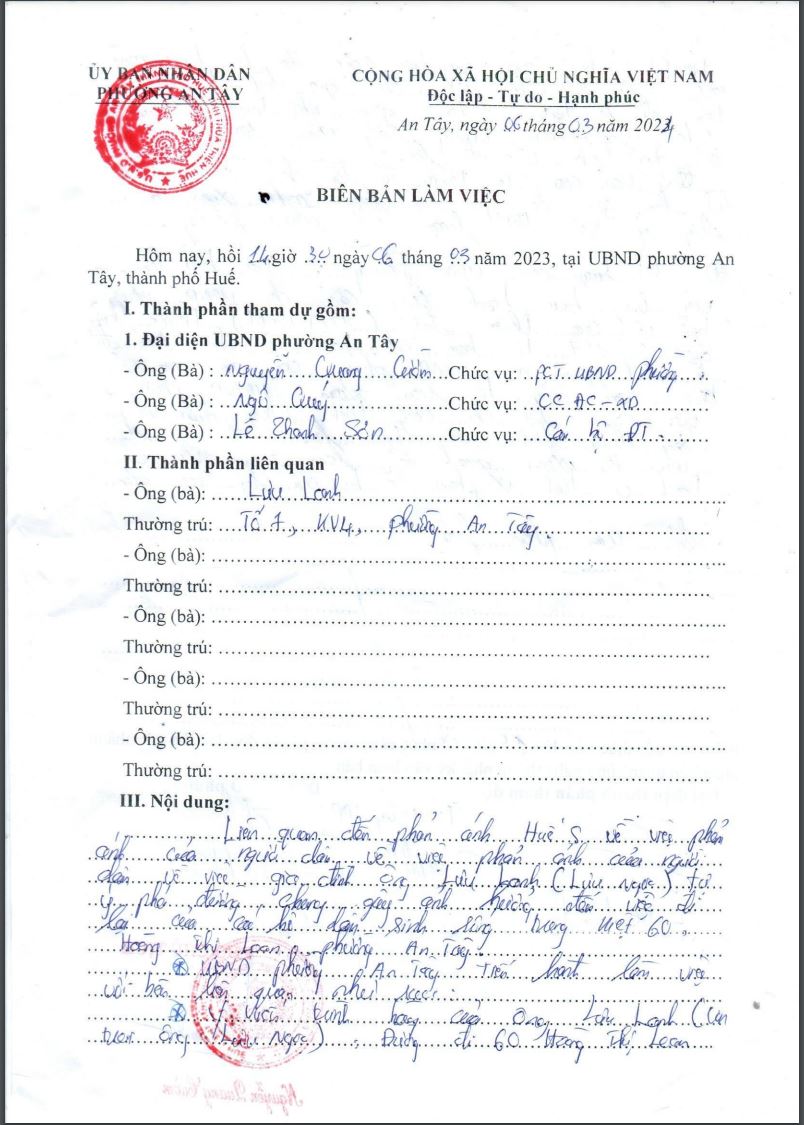 ỦY BAN NHÂN DÂN
PHƯỜNG AN TÂY
CỘNG HÒA XÃ HỘI CHỦ NGHĨA VIỆT NAM
Độc lập - Tự do - Hạnh phúc
An Tây, ngày 06 tháng 03 năm 2024
BIÊN BẢN LÀM VIỆC
Hôm nay, hồi 14 giờ 30 ngày 06 tháng 03 năm 2023, tại UBND phường An
Tây, thành phố Huế.
I. Thành phần tham dự gồm:
1. Đại diện UBND phường An Tây
- Ông (Bà) : Nguyễn Quang Chức vụ: PCT UBND phường
- Ông (Bà) : Ngô Quý Chức vụ: CC ĐC-XD
- Ông (Bà) : Lê Thanh Sơn Chức vụ: Cán bộ ĐT
II. Thành phần liên quan
- Ông (bà): Lưu Lanh
Thường trú: Tổ 7, KV4, phường An Tây
- Ông (bà):
Thường trú:
- Ông (bà):
Thường trú:
- Ông (bà):
Thường trú:
- Ông (bà):
Thường trú:
III. Nội dung:
Liên quan đến phản ánh Huế S về việc phản
ánh của người dân về việc phản ánh của người
dân về việc gia đình ông Lưu Lanh (Lưu Ngọc) tự
ý phá đường gây ảnh hưởng đến việc đi
lại của các hộ dân sinh sống kiệt 60
Hoàng Thị Loan, phường An Tây.
UBND phường An Tây tiến hành làm việc
với bên liên quan như sau:
Ý kiến trình bày của ông Lưu Lanh (
ông Lưu Ngọc), Đường đi 60 Hoàng Thị Loan